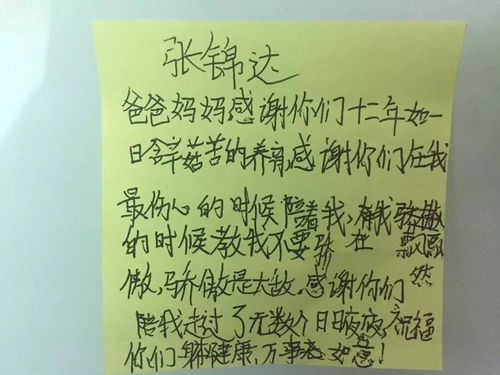 张锦达
爸爸妈妈感谢你们十二年如一
日含辛菇苦的养育,感谢你们在我
最伤心的时候陪着我,在我骄傲
的时候教我不要骄在飘飘然
傲,骄傲是大敌.感谢你们
陪我走过了无数个日日夜夜,祝福
你们身体健康,万事 如意!